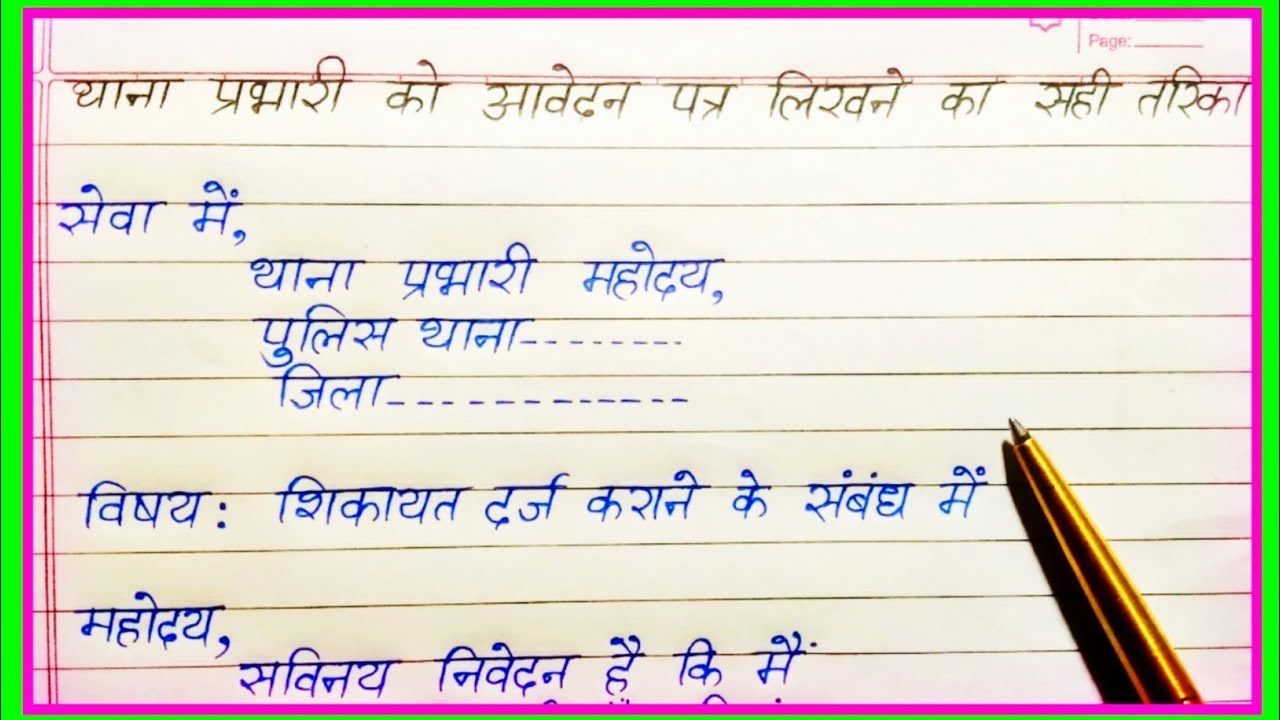 Page:
थाना प्रभारी को आवेदन पत्र लिखने का सही तरिका
सेवा में,
थाना प्रभारी महोदय,
पुलिस थाना--------
जिला------------
विषय: शिकायत दर्ज कराने के संबंध में
महोदय,
सविनय निवेदन है कि मैं